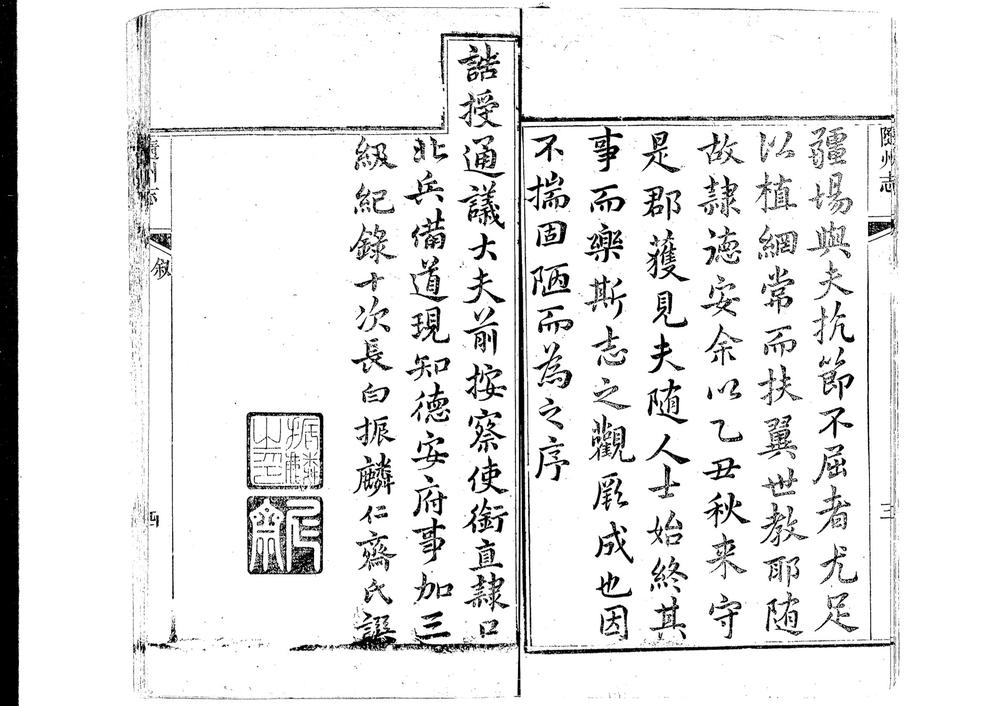 隨州志
三
疆場與夫抗節不屈者尤足
以植綱常而扶翼世教耶随
故隷德安余以乙丑秋来守
是郡獲見夫随人士始終其
事而樂斯志之觀厥成也因
不揣固陋而為之序
誥授通議大夫前按察使銜直隷口
北兵備道現知德安府事加三
級紀錄十次長白振麟仁齋氏譔
州志
叙
四